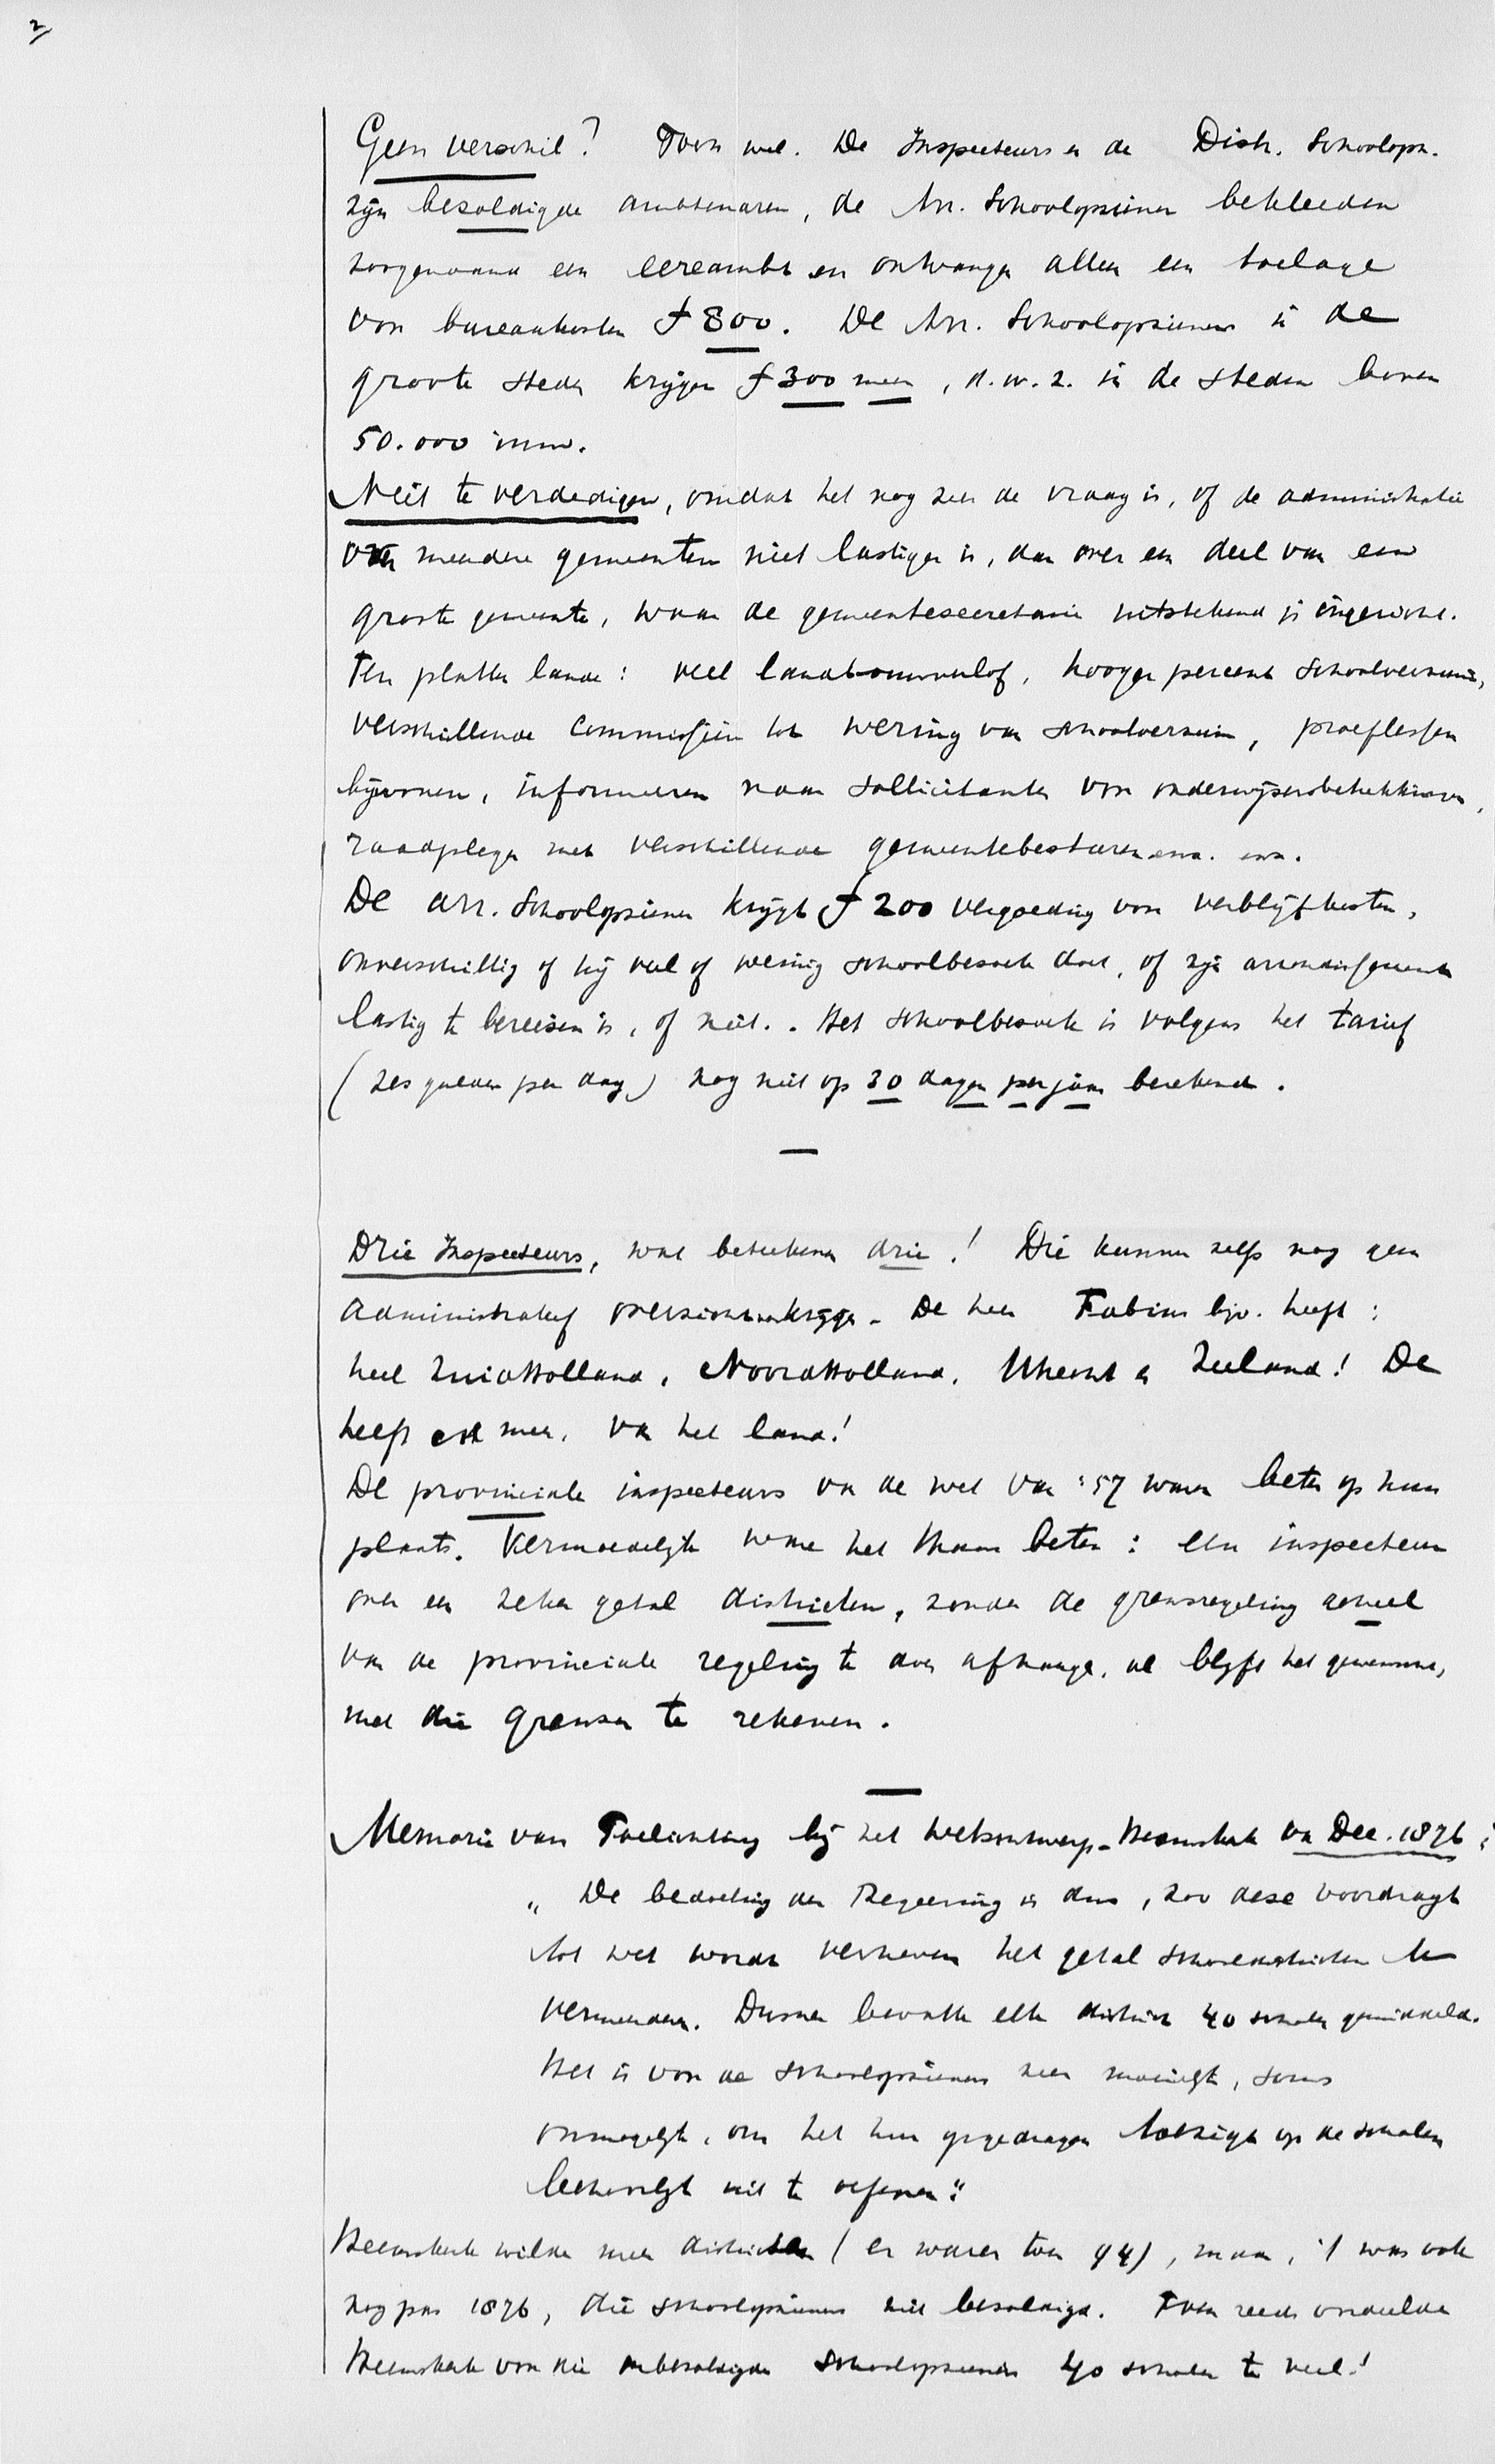 2/
Geen verschil? Toch wel. De Inspecteurs en de Distr. Schoolopz.
zijn bezoldigde ambtenaren, de Arr. Schoolopziener bekleeden
zoogenaamd een eereambt en ontvangen allen een toelage
voor bureaukosten f 800. De Arr. Schoolopzieners in de
groote steden krijgen f 300 meer, d.w.z. in de steden boven
50.000 inw.
Niet te verdedigen, omdat het nog zeer de vraag is, of de administratie
over meerdere gemeenten niet lastiger is, dan over een deel van een
groote gemeente, waar de gemeentesecretarie uitstekend is ingericht.
Ten platten lande: veel landbouwverlof, hooger percent schoolverzuim,
verschillende Commissiën tot wering van schoolverzuim, proeflessen
bijwonen, informeeren naar sollicitanten voor onderwijzersbetrekkingen,
raadplegen met verschillende gemeentebesturen enz. enz.
De arr. Schoolopziener krijgt f 200 vergoeding voor verblijfkosten,
onverschillig of hij veel of weinig schoolbezoek doet, of zijn arrondissement
lastig te bereizen is, of niet. Het schoolbezoek is volgens het tarief
(zes gulden per dag) nog niet op 30 dagen per jaar berekend.
—
Drie Inspecteurs, wat beteekenen drie! Die kunnen zelfs nog geen
administratief overzicht krijgen. De heer Fabius bijv. heeft:
heel ZuidHolland, NoordHolland, Utrecht en Zeeland! De
helft en meer, van het land!
De provinciale inspecteurs van de wet van '57 waren beter op hun
plaats. Vermoedelijk ware het thans beter: een inspecteur
over een zeker getal districten, zonder de grensregeling geheel
van de provinciale regeling te doen afhangen, al blijft het gewenscht,
met die grenzen te rekenen.
—
Memorie van Toelichting bij het Wetsontwerp-Heemskerk van Dec. 1876:
„De bedoeling der Regeering is dus, zoo deze voordragt
tot wet wordt verheven het getal schooldistricten te
vermeerderen. Dusver bevatte elk district 40 scholen gemiddeld.
Het is voor de schoolopzieners zeer moeilijk, soms
onmogelijk, om het hun opgedragen toezigt op de scholen
behoorlijk uit te oefenen."
Heemskerk wilde meer districten (er waren toen 94), maar, 't was ook
nog pas 1876, die schoolopzieners niet bezoldigd. Toen reeds oordeelde
Heemskerk voor die onbezoldigde Schoolopzieners 40 scholen te veel!